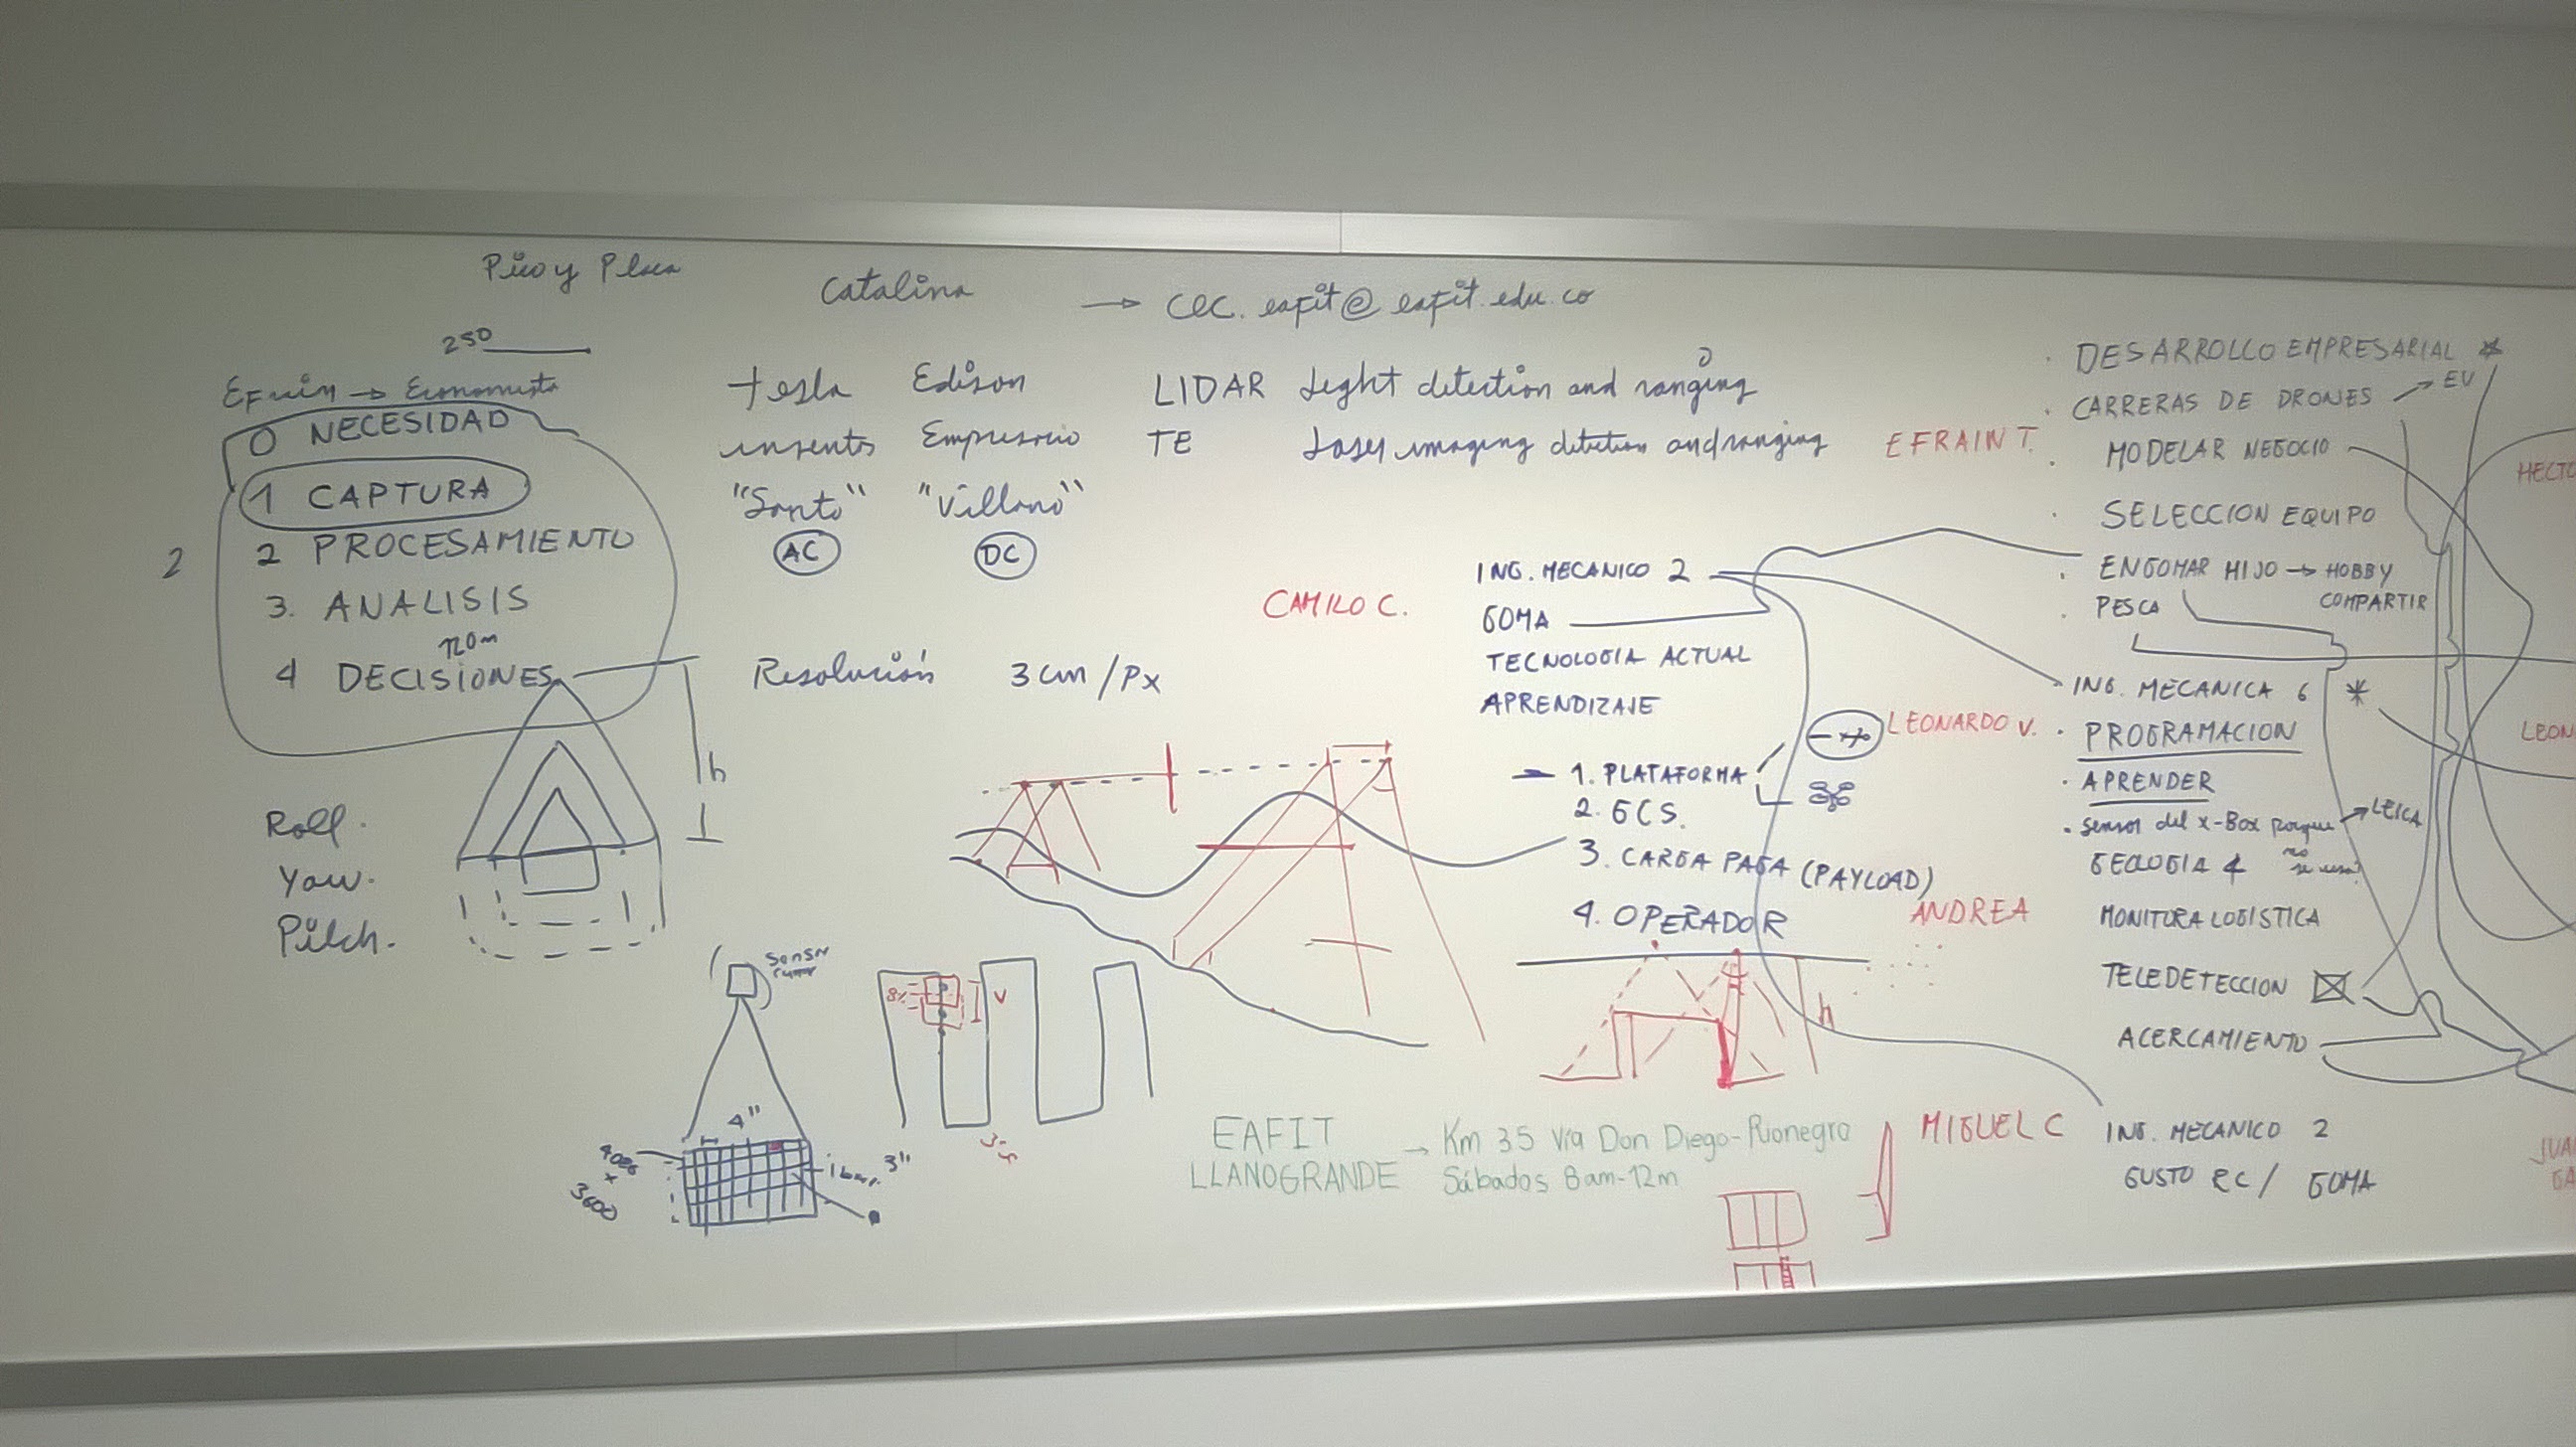 Pico y Placa
Catalina
→ cec.eafit@eafit.edu.co
250
Efrain → Economista
0 NECESIDAD
1 CAPTURA
2 PROCESAMIENTO
3. ANALISIS
120m
4 DECISIONES
2
h
Roll.
Yaw.
Pitch.
Tesla Edison
inventos Empresario
"Santo" "Villano"
AC DC
LIDAR Light detection and ranging
TE Laser imaging detection and ranging
Resolución 3 cm/Px
CAMILO C.
ING. MECANICO 2
GOMA
TECNOLOGIA ACTUAL
APRENDIZAJE
→ 1. PLATAFORMA
2. GCS.
3. CARGA PAGA (PAYLOAD)
4. OPERADOR
h
Sensor
4"
3"
4086
x
3600
V
EAFIT
LLANOGRANDE
→ Km 35 Vía Don Diego-Rionegro
Sábados 8am-12m
EFRAIN T.
· DESARROLLO EMPRESARIAL *
· CARRERAS DE DRONES → EV
· MODELAR NEGOCIO
· SELECCION EQUIPO
· ENGOMAR HIJO → HOBBY
COMPARTIR
· PESCA
LEONARDO V.
ING. MECANICA 6 *
· PROGRAMACION
· APRENDER
· Sensor del X-Box porque → LEICA
no
se usa
ANDREA
GEOLOGIA 4
MONITORA LOGISTICA
TELEDETECCION
ACERCAMIENTO
MIGUEL C
ING. MECANICO 2
GUSTO RC / GOMA